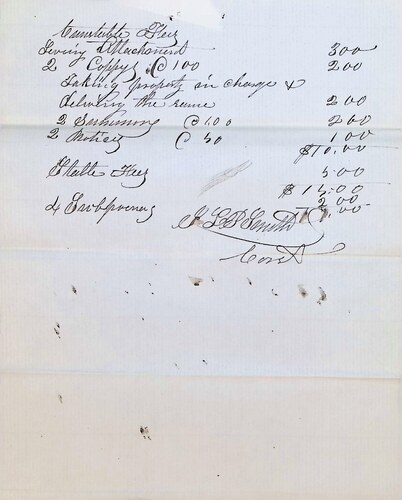 Cunstable Fees
Serving Attachment 300
2 Coppys @ 100 200
Takling property in charge &
Delivering the same 200
2 Summons @ 1.00 200
2 Notices @ 50 1 00
$10.00
Fees 5.00
$15.00
4 Subpoenas 2.00
Smith
Const